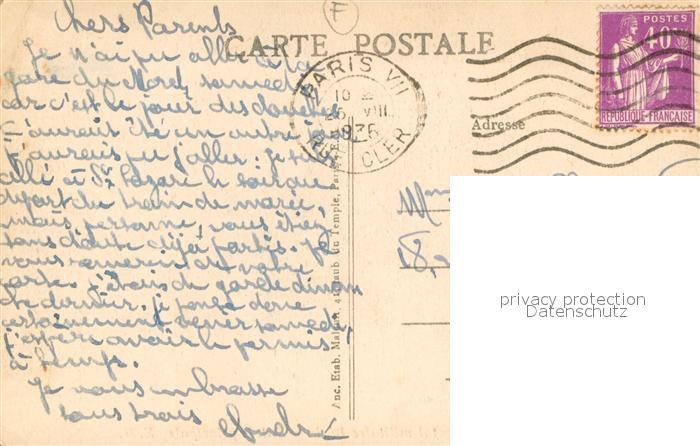 Chers Parents
CARTE POSTALE
Je n'ai pu aller à la
gare du Nord, samedi
car c'est le jour des douches
Ç'aurait été un autre jour
j'aurais pu j'aller. Je suis
allé à St Lazare le soir que
départ du train de marée,
mais personne, vous étiez
sans doute déjà partis. Je
vous remercie de votre
carte. J'étais de garde diman
che dernier. je pense donc
certainement venir samedi,
j'espère avoir le permis,
à temps.
Je vous embrasse
tous trois
F
PARIS VII
10
25 VIII
CLER
POSTES
40c
REPUBLIQUE FRANÇAISE
Adresse
18,
Anc. Etab. 4, Faub. du Temple, Paris
privacy protection
Datenschutz